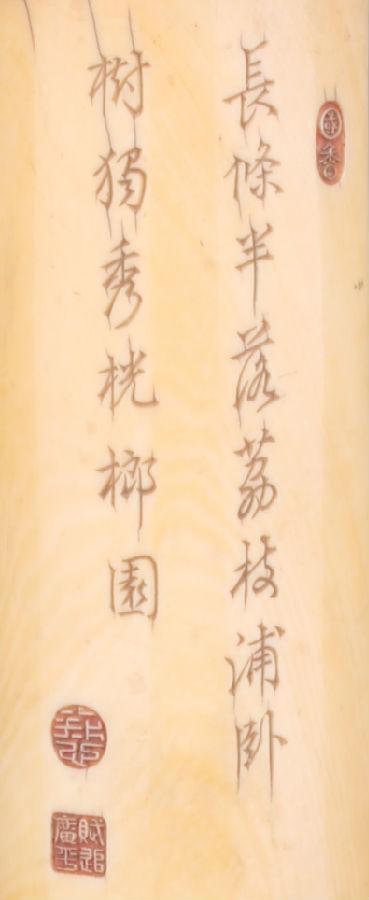 國香
長條半落荔枝浦卧
樹獨秀桄榔園